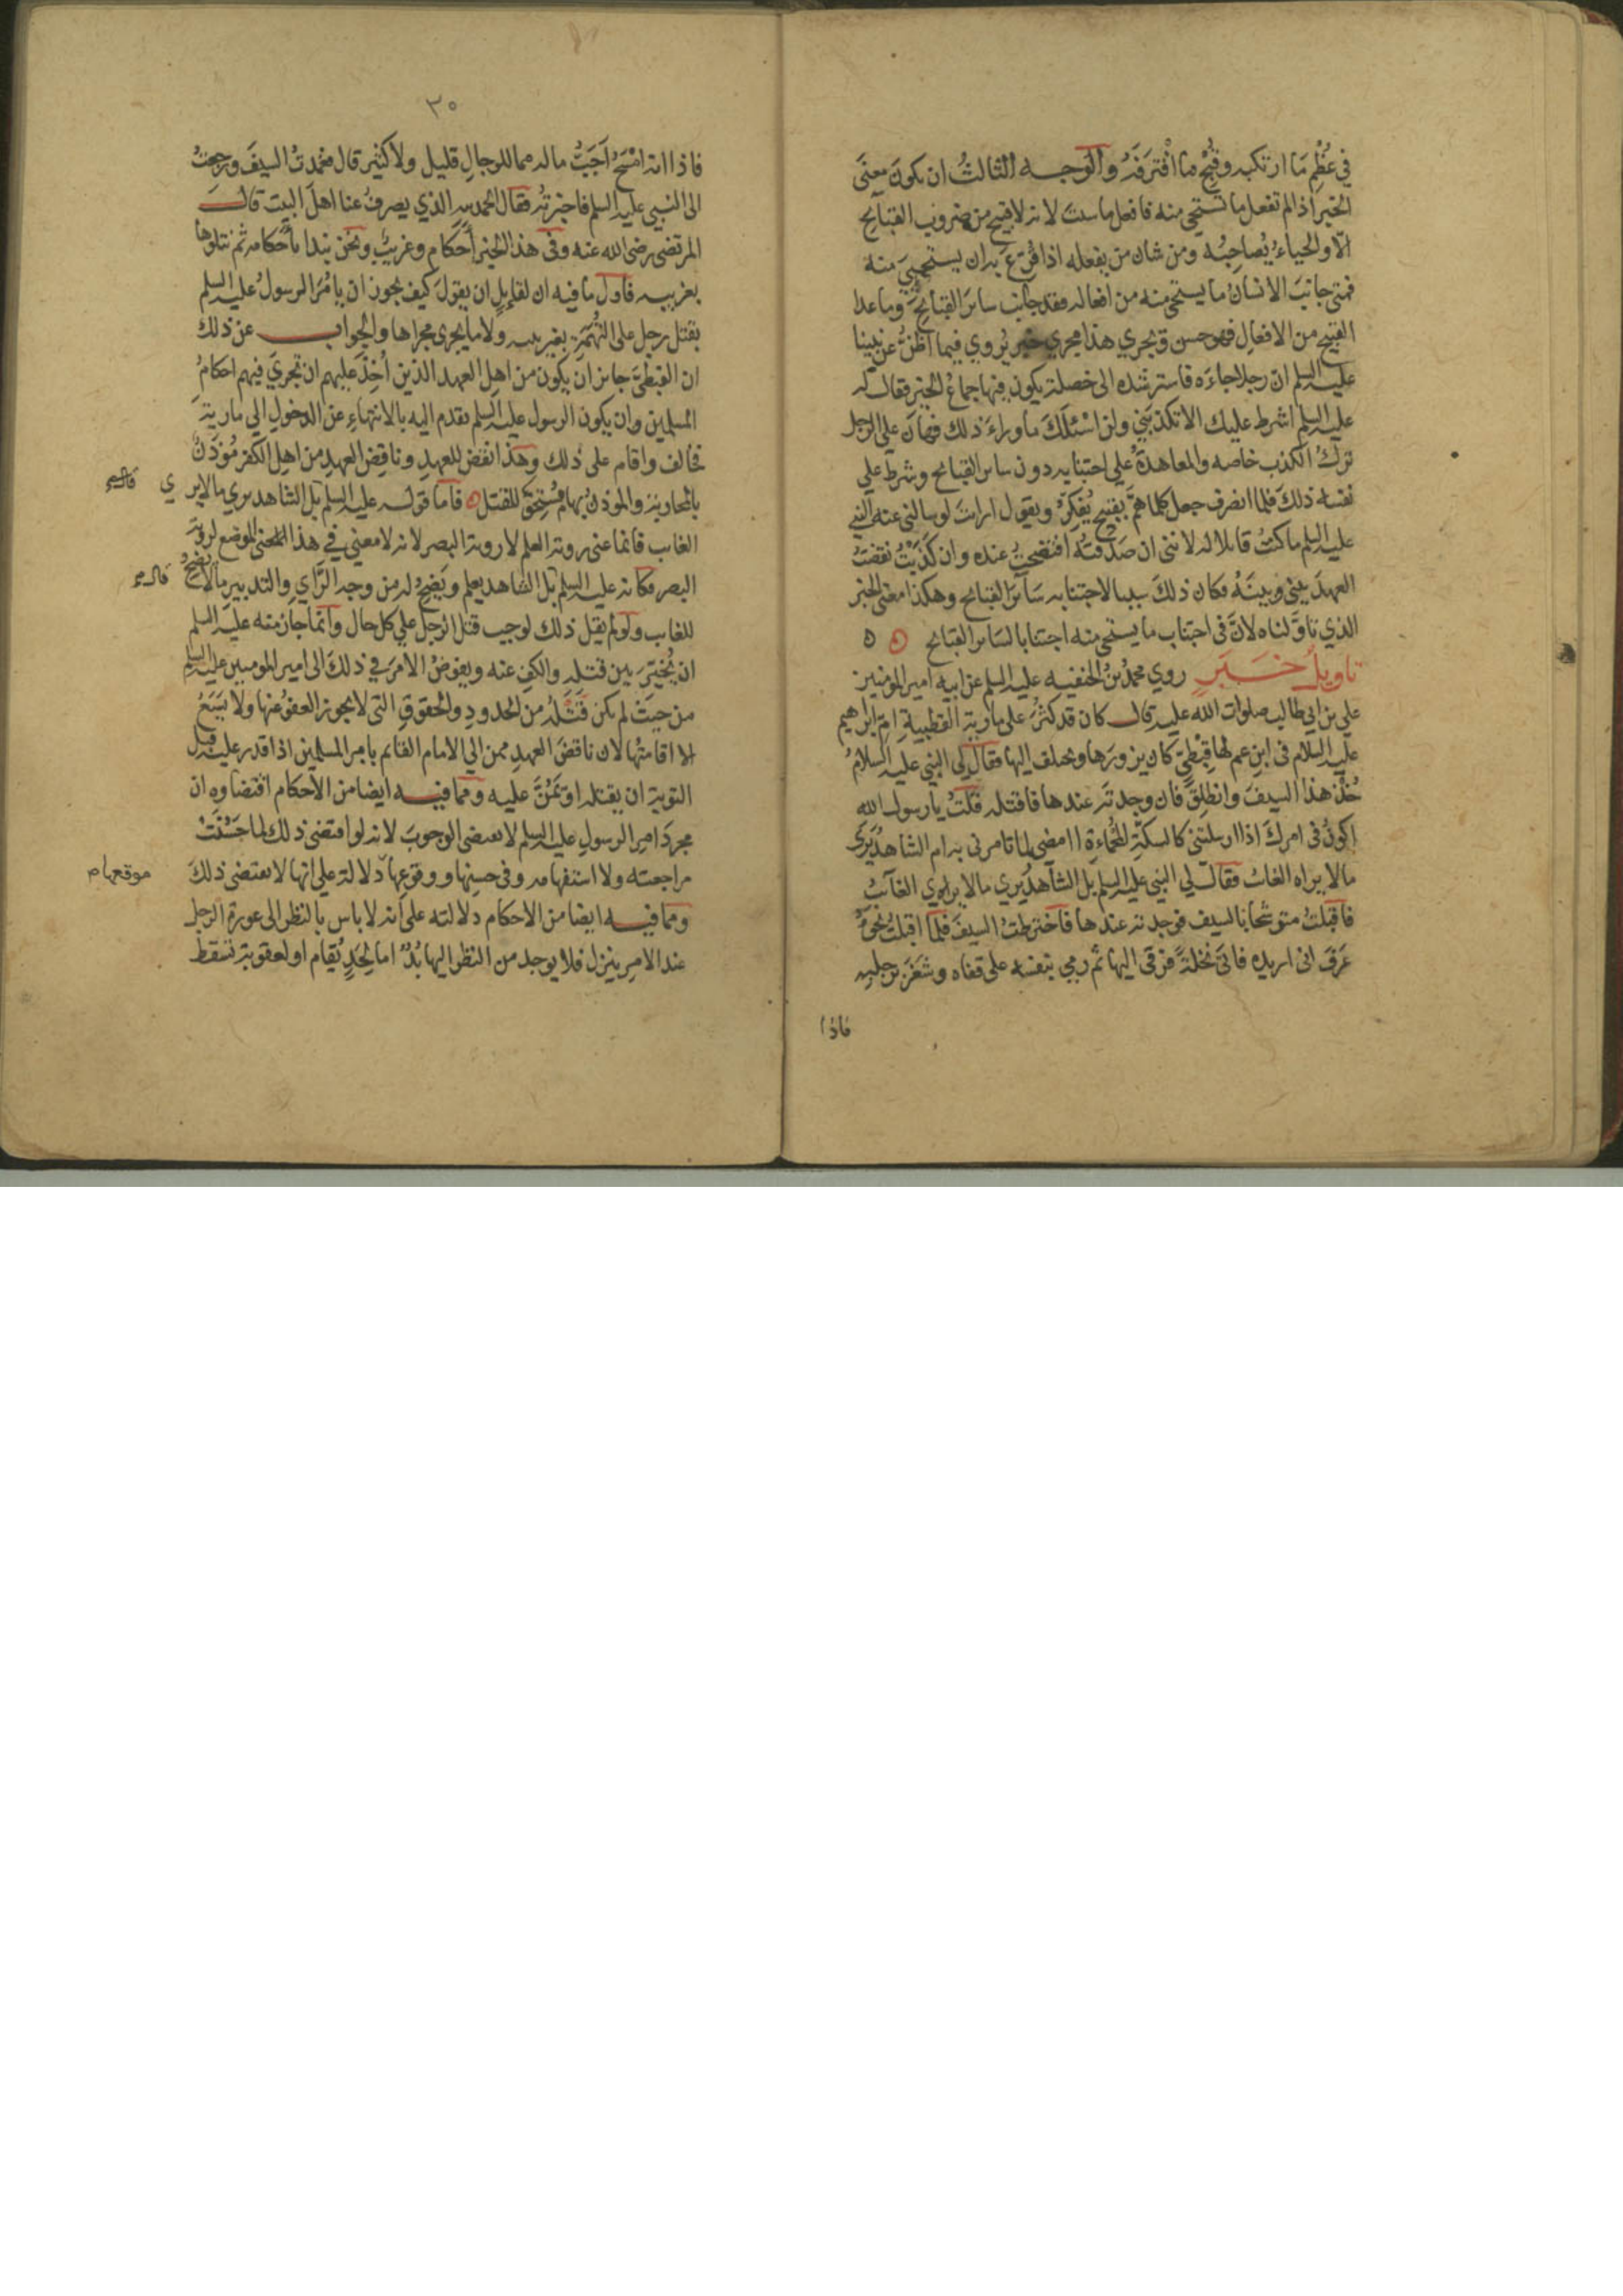 في عُظْمِ مَا ارتكبه وقُبْحِ ما اقْتَرَفَهُ والوجه الثالثُ ان يكونَ معنَى
الخبر اذا لم تفعل ما تستحي منه فافعل ما شئت لانه لا قبيح من ضروب القبائح
الّا والحياءُ يُصاحِبُه ومن شان من يفعله اذا قُرِّع به ان يستحيِيَ منه
فمتى جانبَ الانسانُ ما يستحي منه من افعاله فقد جانب سائرَ القبائِح وما عدا
القبيح من الافعالِ فهو حسن ويجري هذا مجري خبر يُروي فيما اظنّ عن نبينا
عليه السلم ان رجلا جاءَه فاسترشده الى خصلة يكون فيها جماعُ الخير فقال له
عليه السلم اشرط عليك الا تكذبَنِي ولن اسْئَلَكَ ما وراءَ ذلك فهانَ علي الرجل
تركُ الكذب خاصه والمعاهدةُ علي اجتنابه دون سائر القبائح وشرط علي
نفسه ذلكَ فلما انصرف جعل كلما همَّ بقبيح يُفكِرُ ويقول ارايتَ لو سالني عنه النبي
عليه السلم ما كنتُ قائلا له لانني ان صَدَقتُه افتضحتُ عنده وان كَذَبْتُ نقضتُ
العهدَ بيني وبينَهُ فكان ذلكَ سببا لاجتنابه سَائرَ القبائح وهكذا معنى الخبر
الذي تاوَّلناه لانَّ في اجتناب ما يستحي منه اجتنابا لسائر القبائح ۞ ٥
تاويلُ خَبَرٍ روي محمدُ بنُ الحنفيه عليه السلم عن ابيه امير المومنين
علي بن ابي طالب صلوات الله عليه قال كان قد كثُرَ على مارية القبطيةِ امّ ابرهيم
عليه السلام في ابنِ عمٍ لها قِبْطِيٍّ كان يزورَها ويختلف اليها فقال لي النبي عليه السلامُ
خُذْ هذا السيفَ وانطلِقْ فان وجدتَه عندها فاقتله قُلتُ يا رسول الله
اكونُ في امركَ اذا ارسلتني كالسكةِ المُحْماةِ امضي لما تامرني به ام الشاهدُ يَرَى
ما لا يراه الغائبُ فقال لي النبي عليه السلم بل الشاهدُ يري ما لا يري الغائبُ
فاقبلتُ متوشحا بالسيف فوجدته عندها فاخترطتُ السيفَ فلما اقبلتُ نحوَهُ
عَرَفَ اني اريده فاتى نخلةً فرقى اليها ثم رمي بنفسه على قفاه وشَغَرَ برجليه
فاذا
٣٠
فاذا انه امْسَحُ اَجَبُّ ماله مما للرجالِ قليل ولا كثير قال فغمدتُ السيفَ ورجعتُ
الى النبي عليه السلم فاخبرتُه فقال الحمد لله الذي يصرفُ عنا اهلَ البيت قال
المرتضى رضي الله عنه وفي هذا الخبر اَحكام وغريبٌ ونحن نبدا باَحكامه ثم نتلوها
بغريبه فاول ما فيه ان لقايلٍ ان يقولَ كيف يجوز ان يامُرَ الرسولُ عليه السلم
بقتل رجلٍ على التُهَمةِ بغير بينه ولا ما يجرى مجراها والجواب عن ذلك
ان القبطيَّ جائز ان يكون من اهلِ العهد الذين اُخِذَ عليهم ان تجريَ فيهم احكامُ
المسلمين وان يكون الرسول عليه السلم تقدم اليه بالانتهاءِ عن الدخولِ الى مارية
فخالف واقام على ذلك وهذا نقض للعهدِ وناقِض العهدِ من اهل الكفر مُؤذِنٌ
بالمحاربة والموذنُ بها مُستحِقٌّ للقتل ۞ فاما قوله عليه السلم بَل الشاهد يري ما لا يري
الغائب فانما عنى روية العلم لا روية البصر لانه لا معنى في هذا الموضع لروية
البصر فكانه عليه السلم بَل الشاهد يعلم ويَضِحُ له من وجه الرَّاي والتدبير ما لا يضِحُ
للغائب ولو لم يقل ذلك لوجب قتل الرجل علي كل حال وانما جازَ منه عليه السلم
ان يُخيّرَ بين قتله والكفِ عنه ويفوضَ الامرَ في ذلكَ الى امير المومنين عليه السلم
من حيثُ لم يكن قَتْلُه من الحدودِ والحقوقِ التي لا يجوز العفوُ عنها ولا يَسَعُ
الا اقامتُها لان ناقضَ العهدِ ممن الي الامام القائم بامر المسلمين اذا قدر عليه قبل
التوبة ان يقتله او يَمُنَّ عليه ومما فيه ايضا من الاحكام اقتضاوه ان
مجردَ امرِ الرسولِ عليه السلم لا يقتضى الوجوبَ لانه لو اقتضى ذلك لما حَسُنَتْ
مراجعته ولا استفهامه وفي حسنِها ووقوعِها دلالة علي انها لا يقتضى ذلكَ
ومما فيه ايضا من الاحكام دلالته على اَنه لا باس بالنظر الى عورة الرجل
عند الامر ينزل فلا يوجد من النظر اليها بُدٌّ اما لِحَدٍ يُقام او لعقوبة تسقط
موقعها م